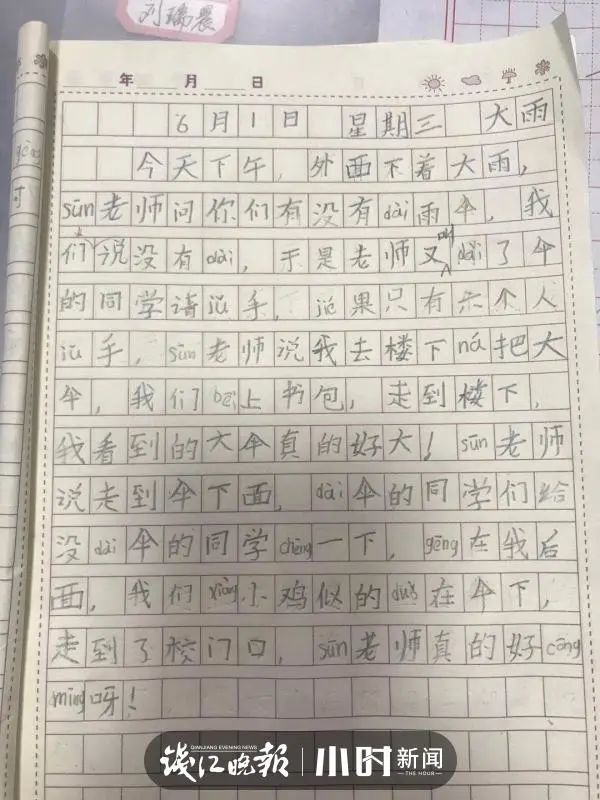 刘瑞晨
年 月 日
6月1日 星期三 大雨
今天下午，外面下着大雨，
sūn老师问你们有没有dài雨伞，我
们说没有dài，于是老师又叫dài了伞
的同学请jǔ手，jié果只有六个人
jǔ手，sūn老师说我去楼下ná把大
伞，我们bēi上书包，走到楼下，
我看到的大伞真的好大！sūn老师
说走到伞下面，dài伞的同学们给
没dài伞的同学chēng一下，gēng在我后
面，我们xiàng小鸡似的duǒ在伞下，
走到了校门口，sūn老师真的好cōng
míng呀！
钱江晚报 小时新闻
QIANJIANG EVENING NEWS THE HOUR